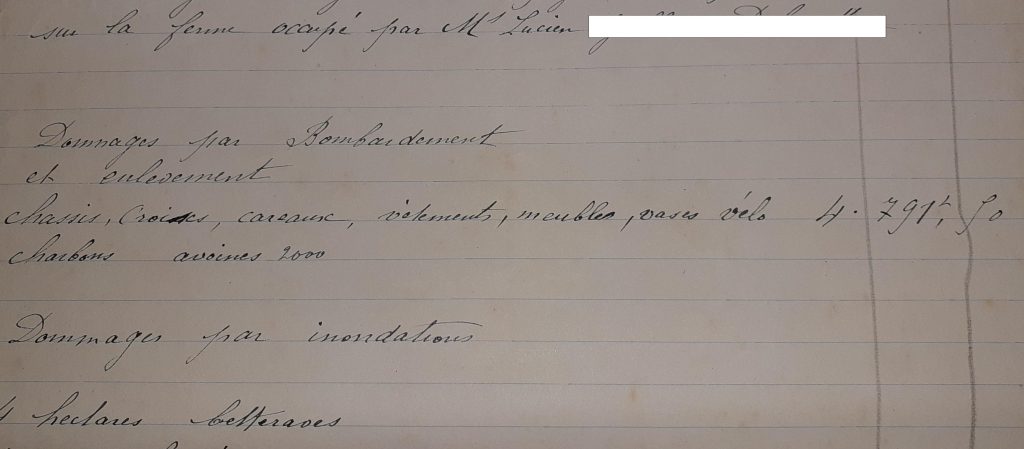 sur la ferme occupé par Mr Lucien
Dommages par Bombardement
et enlevement
chassis, Croisées, careaux, vêtements, meubles, vases vélo 4.791f,50
charbons avoines 2000
Dommages par inondations
4 hectares betteraves